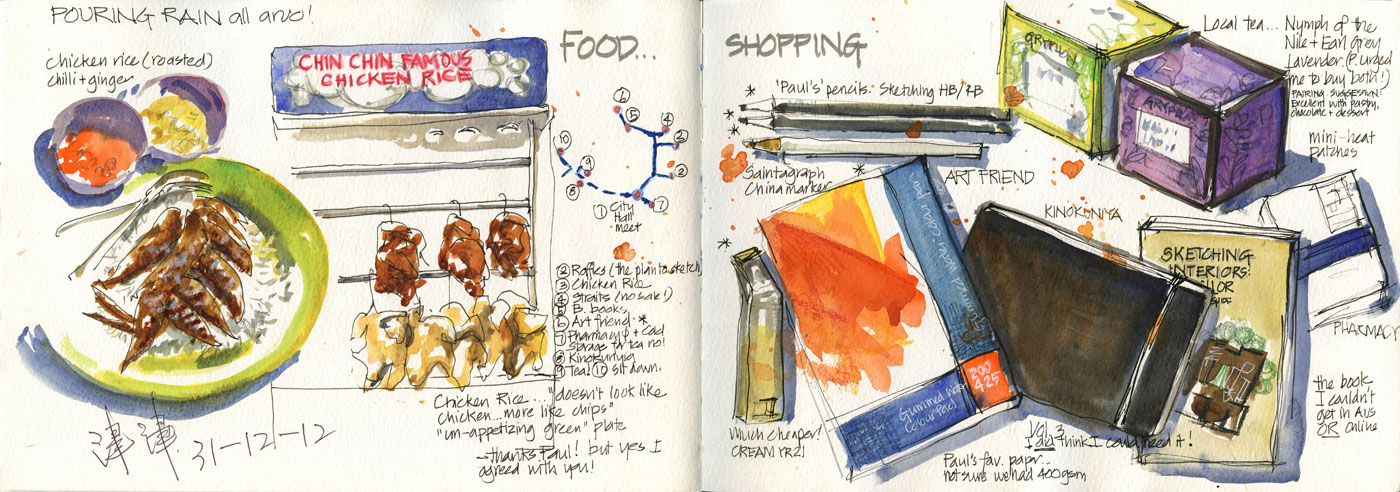 POURING RAIN all arvo!
chicken rice (roasted)
chilli + ginger
CHIN CHIN FAMOUS
CHICKEN RICE
FOOD...
6
5
4
3
2
10
9
8
7
1 City
Hall
meet
2 Raffles (the plan to sketch)
3 Chicken Rice
4 Straits (no sak!)
5 B. books
6 Art friend *
7 Pharmacy + Cold
Storage for tea no!
8 Kinokuniya
9 Tea! 10 sit down.
Chicken Rice ... "doesn't look like
chicken... more like chips"
"un-appetizing green" plate
- thanks Paul! but yes I
agreed with you!
31-12-12
SHOPPING
'Paul's' pencils. Sketching HB/7B
Saintagraph
Chinamarker
ART FRIEND
GRYPHON
GRYPHON
Local tea... Nymph of the
Nile + Earl Grey
Lavender. (P. urged
me to buy both!)
PAIRING SUGGESTION:
Excellent with pastry,
chocolate + dessert
mini-heat
patches
PHARMACY
KINOKUNIYA
SKETCHING
INTERIORS:
the book
I couldn't
get in Aus
OR Online
200
425
Gummed Water
Colour Pad
Much cheaper!
CREAM YR21
Vol. 3
I did think I could need it!
Paul's fav. papr...
not sure we had 400gsm